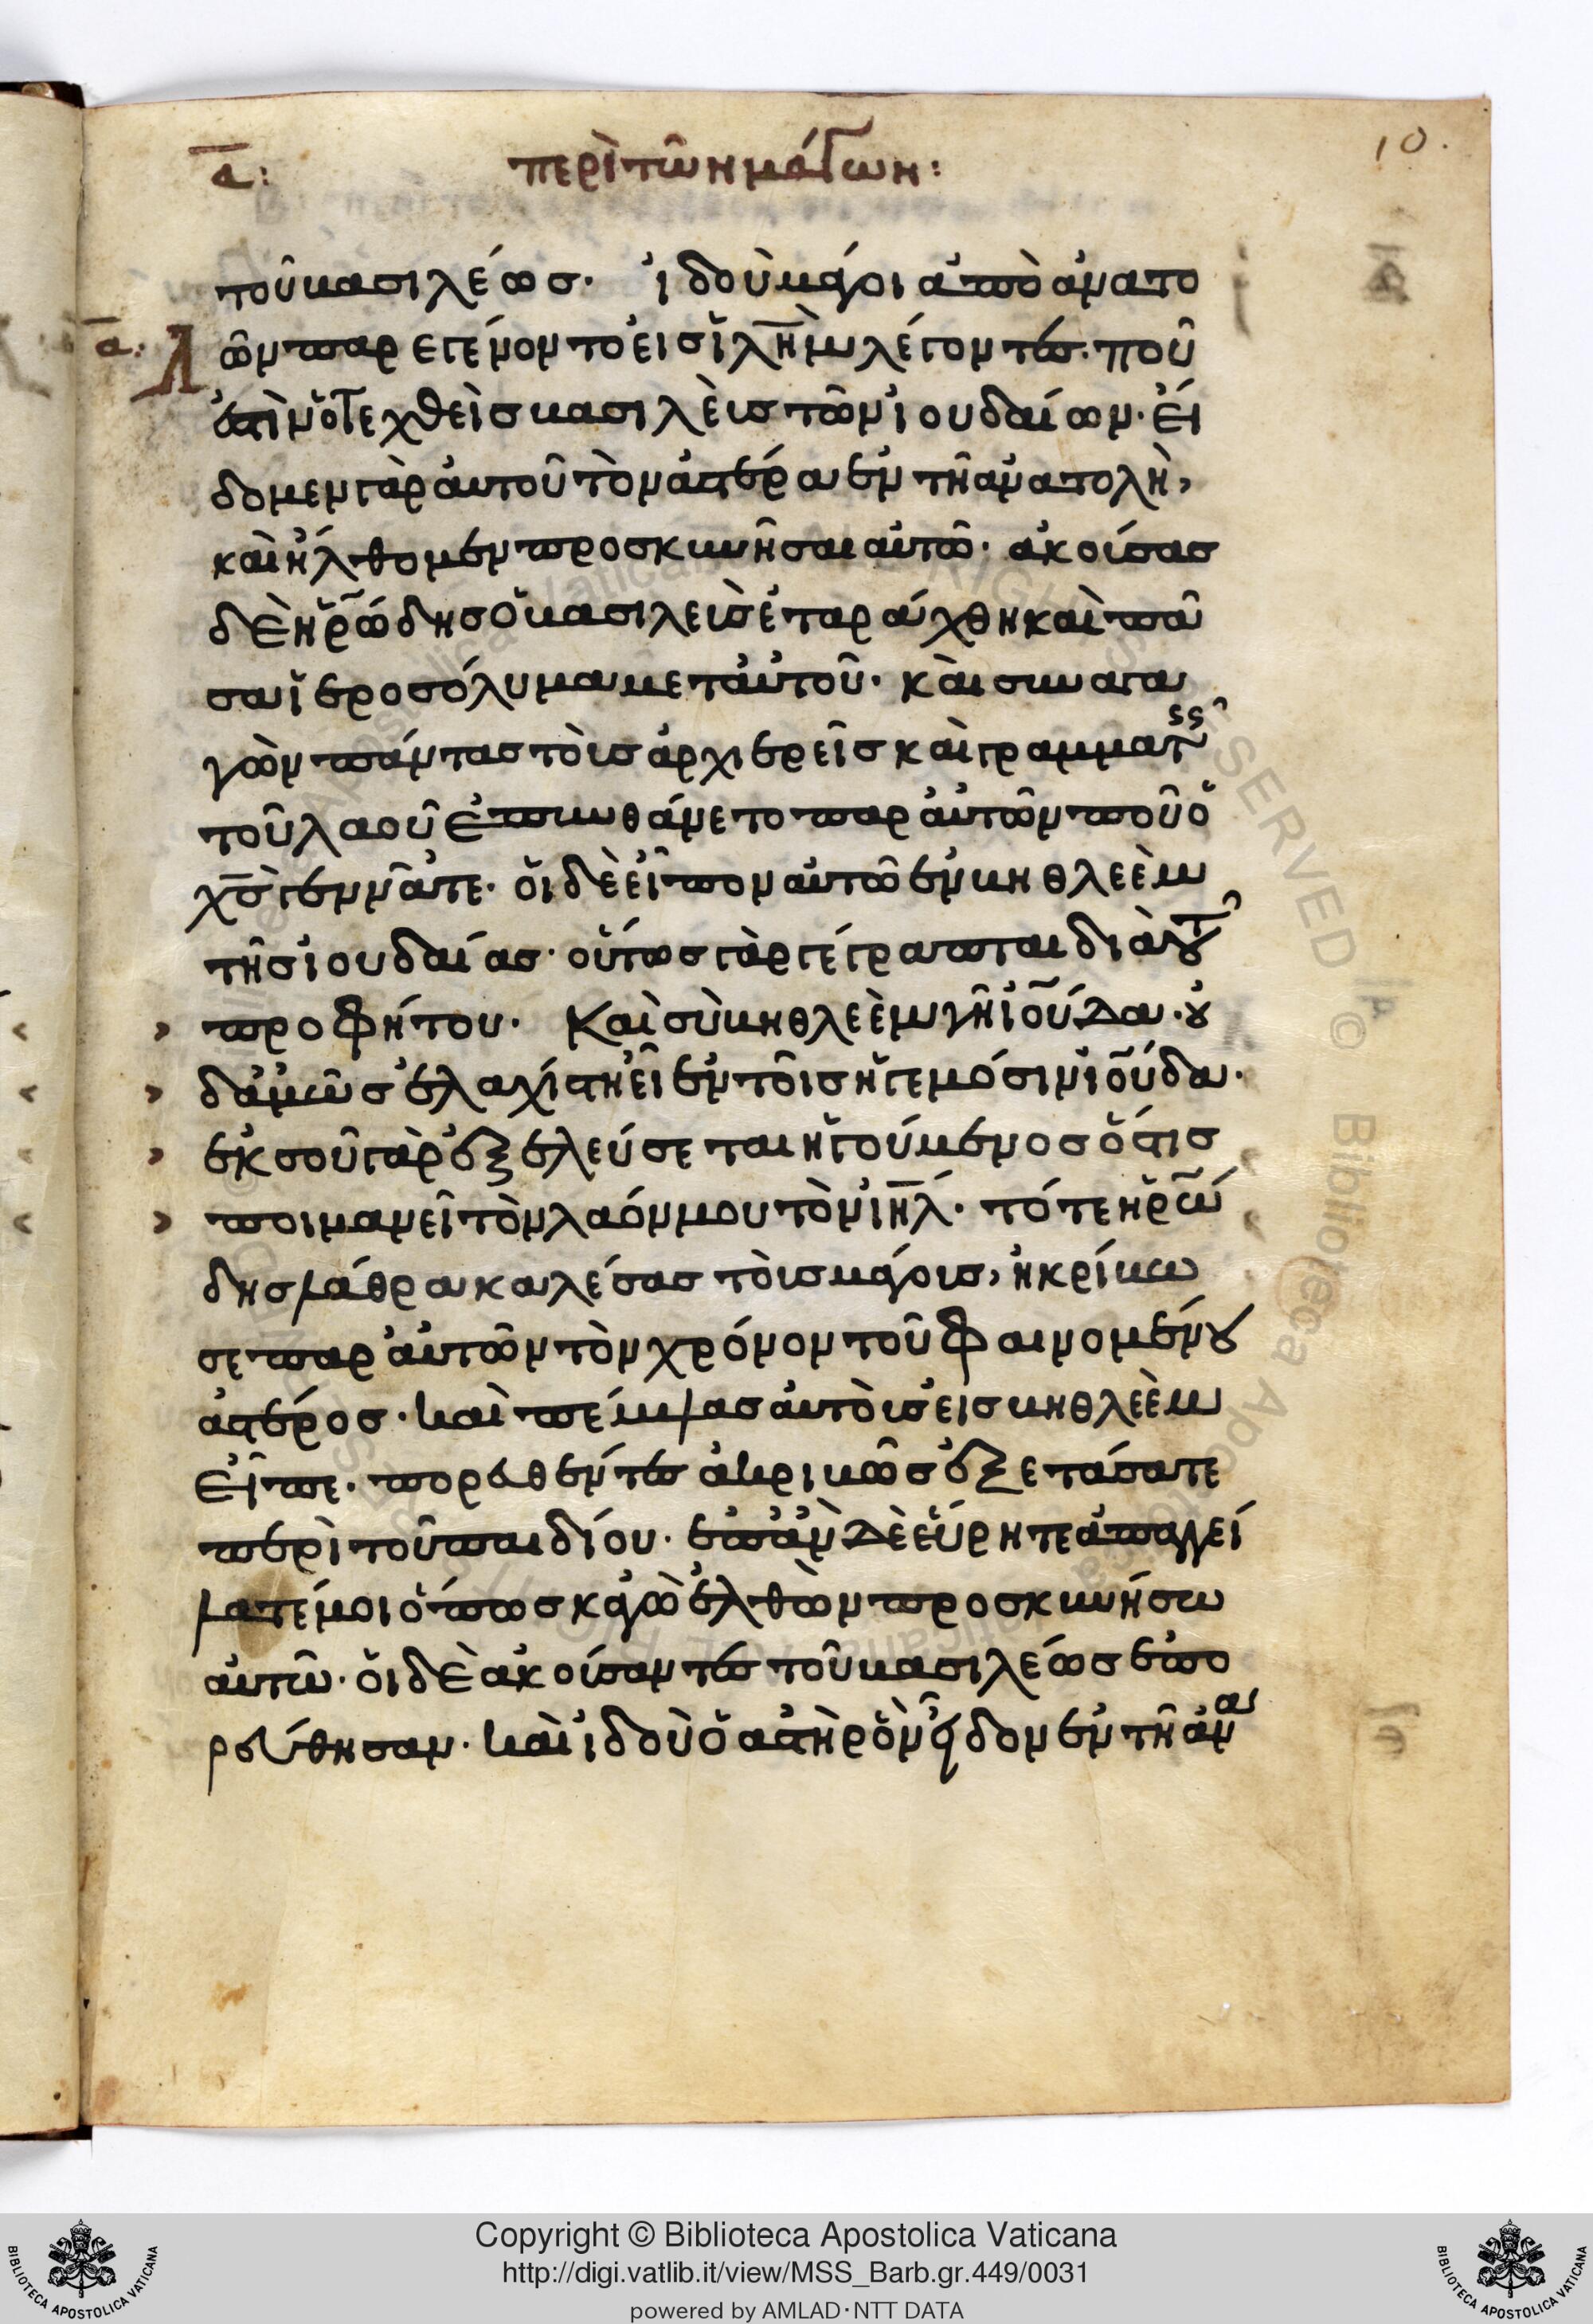 10.
α: περὶ τῶν μάγων:
τοῦ βασιλέωσ. ἰδοὺ μάγοι ἀπὸ ἀνατο
α: λῶν παρεγένοντο εἰσ ϊλημ λέγοντες. ποῦ
ἐστὶν ὁ τεχθεὶσ βασιλεὺσ τῶν ϊουδαίων. εἴ
δομεν γὰρ αὐτοῦ τὸν ἀστέρα ἐν τῆ ἀνατολῆ,
καὶ ἤλθομεν προσκυνῆσαι αὐτῶ. ἀκούσασ
δὲ ἡρώδησ ὁ βασιλεὺσ ἐταράχθη καὶ πᾶ
σα ἱεροσόλυμα μετ αὐτοῦ. καὶ συναγα
γὼν πάντασ τοὺσ ἀρχιερεῖσ καὶ γραμματ
τοῦ λαοῦ ἐπυνθάνετο παρ αὐτῶν ποῦ ὁ
χσ γεννᾶται. οἱ δὲ εἶπον αὐτῶ ἐν βηθλεὲμ
τῆσ ϊουδαίασ. οὕτωσ γὰρ γέγραπται διὰ τοῦ
› προφήτου. Καὶ σὺ βηθλεὲμ γῆ ϊούδα. ου
› δαμῶσ ἐλαχίστη εἶ ἐν τοῖσ ἡγεμόσιν ϊούδα.
› ἐκ σοῦ γὰρ ἐξελεύσεται ἡγούμενοσ ὅστισ
› ποιμανεῖ τὸν λαόν μου τὸν ιηλ. τότε ἡρώ
δησ λάθρα καλέσασ τοὺσ μάγουσ, ἠκρίβω
σε παρ αὐτῶν τὸν χρόνον τοῦ φαινομένου
ἀστέροσ. καὶ πέμψασ αὐτοὺσ εἰσ βηθλεὲμ
εἶπε. πορευθέντες ἀκριβῶσ ἐξετάσατε
περὶ τοῦ παιδίου. ἐπὰν δὲ εὕρητε ἀπαγγεί
λατέ μοι ὅπωσ κἀγὼ ἐλθὼν προσκυνήσω
αὐτῶ. οἱ δὲ ἀκούσαντες τοῦ βασιλέωσ ἐπο
ρεύθησαν. καὶ ἰδοὺ ὁ ἀστὴρ ὃν εἶδον ἐν τῆ ἀνα
Copyright © Biblioteca Apostolica Vaticana
http://digi.vatlib.it/view/MSS_Barb.gr.449/0031
powered by AMLAD·NTT DATA
BIBLIOTECA APOSTOLICA VATICANA
BIBLIOTECA APOSTOLICA VATICANA